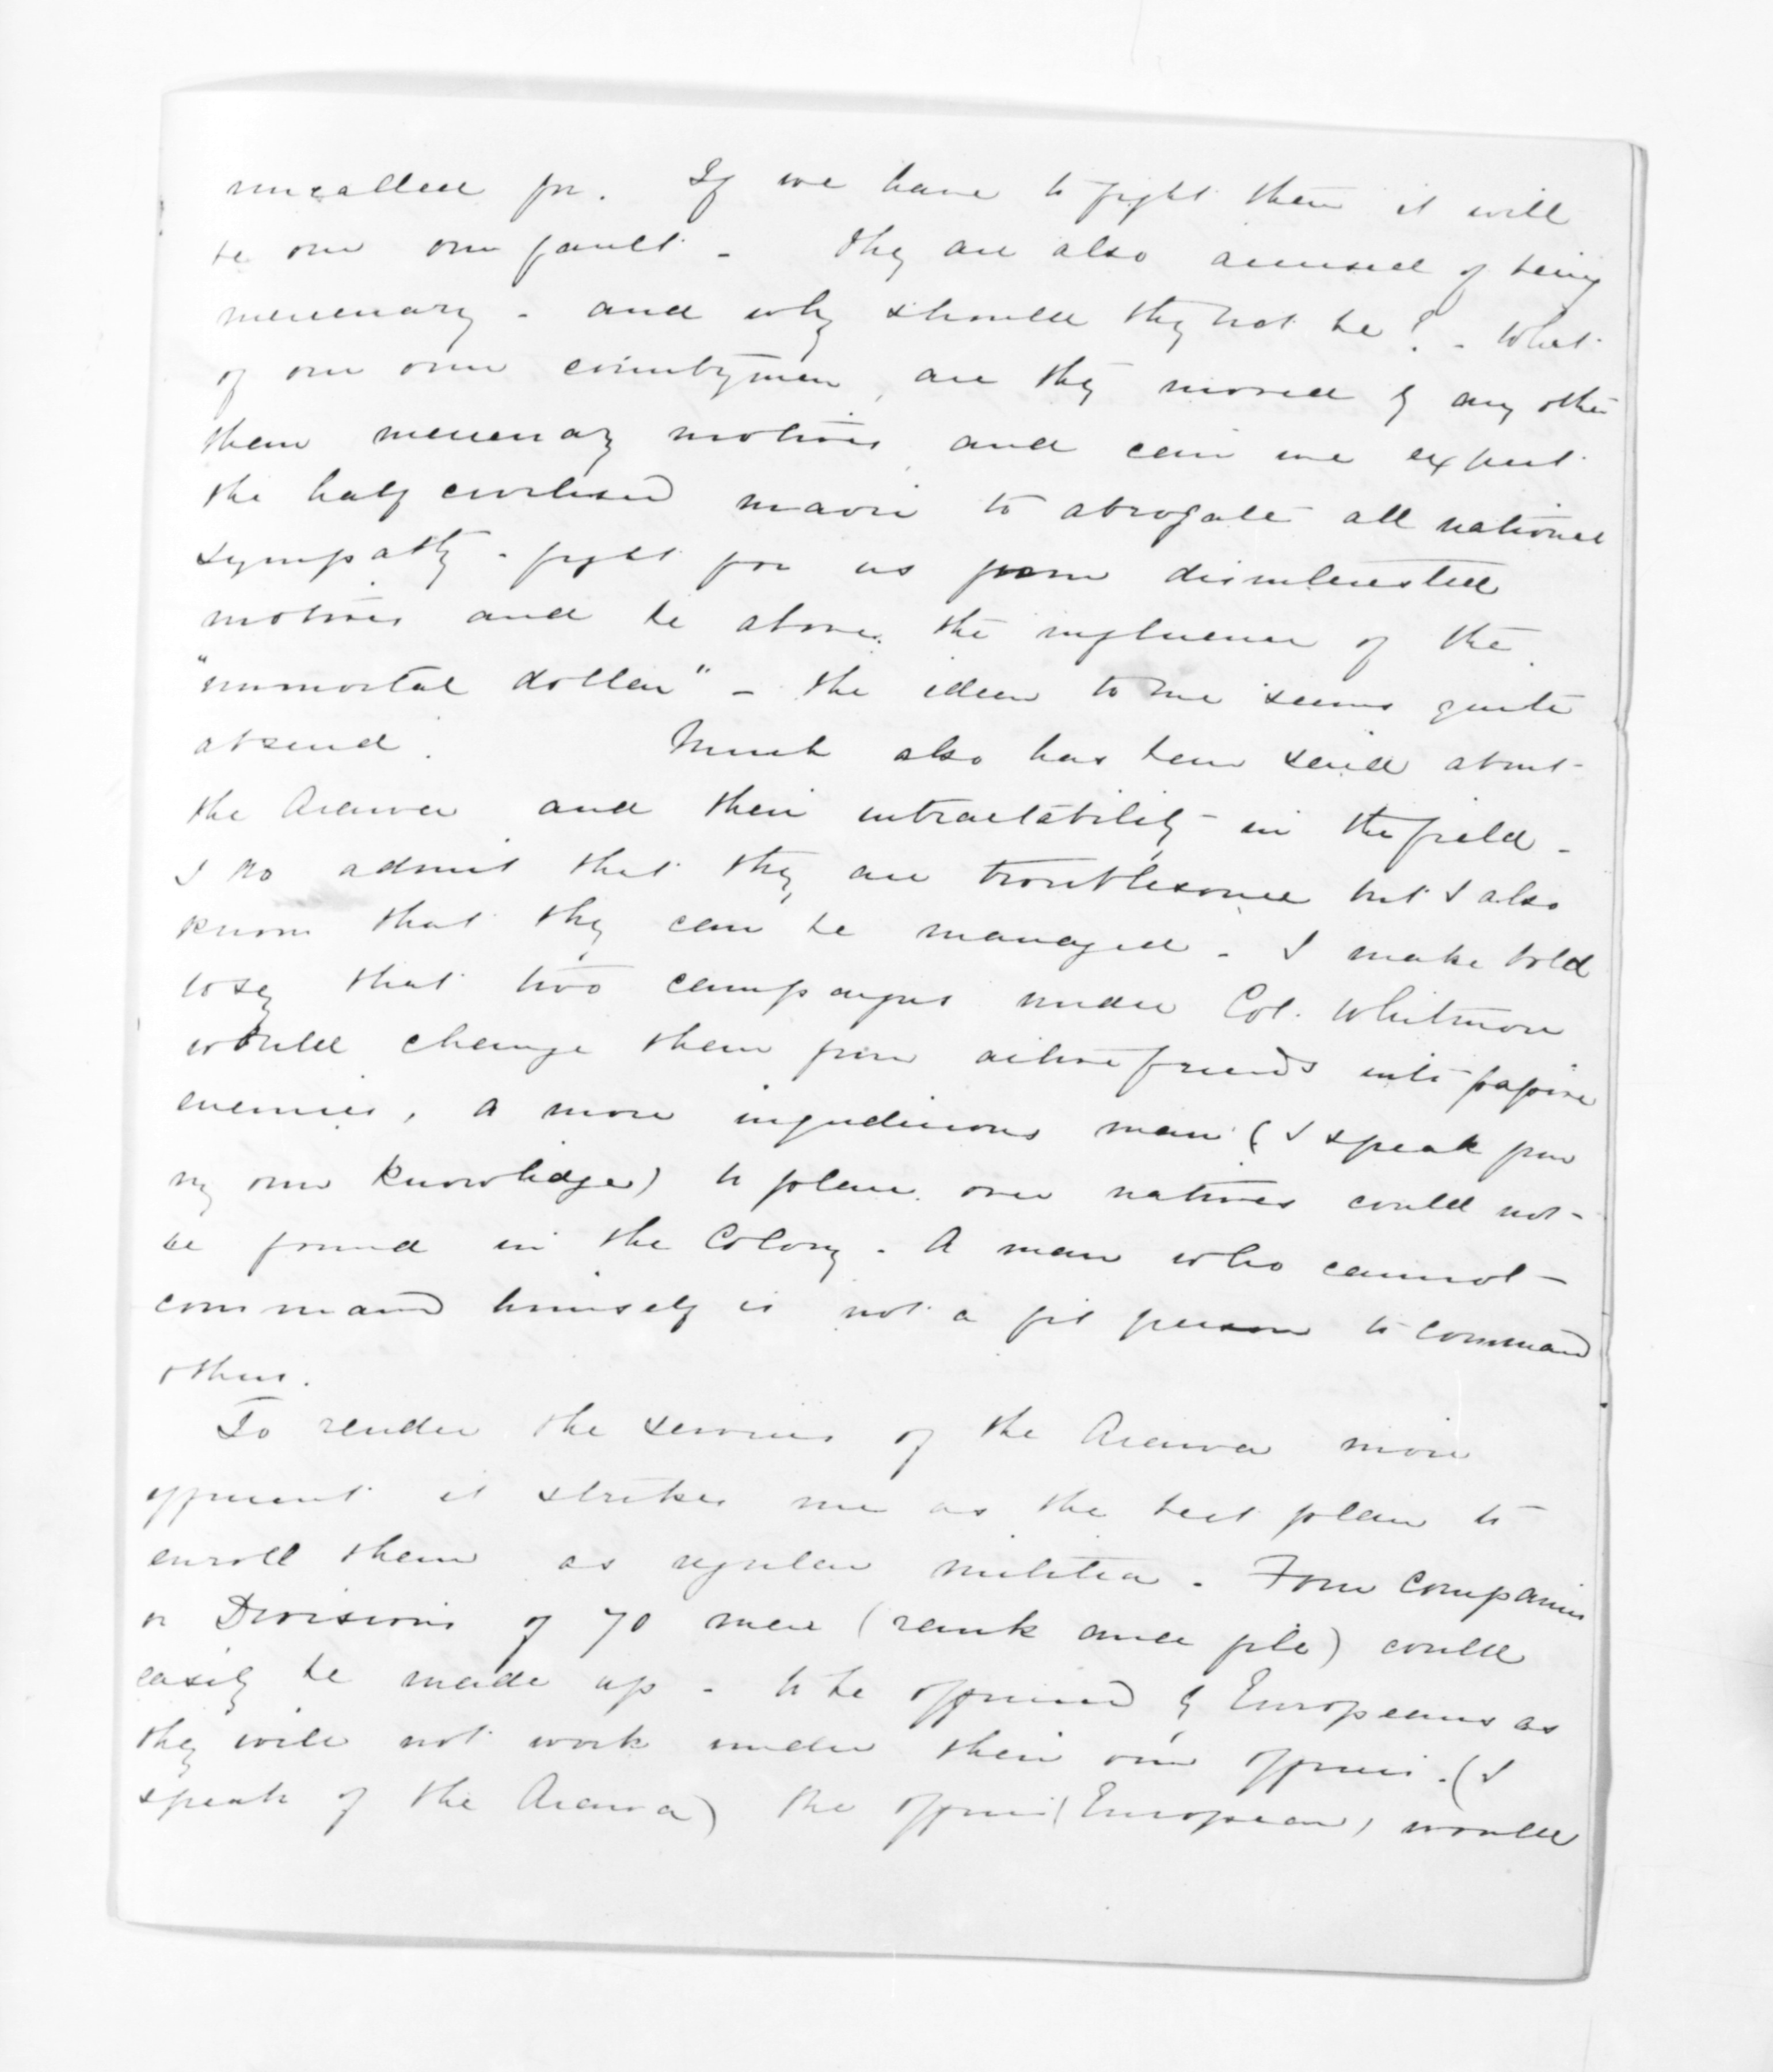 uncalled for. If we have to fight them it will
be our own fault - They are also accused of being
mercenary - and why should they not be? - What
of our own countrymen, are they moved by any other
than mercenary motives, and can we expect
the half civilised maori to abrogate all national
sympathy - fight for us from disinterested
motives and be above the influence of the
"immortal dollar" - the idea to me seems quite
absurd. Much also has been said about
the Arawa and their intractability in the field -
I do admit that they are troublesome but I also
know that they can be managed - I make bold
to say that two campaigns under Col. Whitmore
would change them from active friends into passive
enemies, a more injudicious man (I speak from
my own knowledge) to place over natives could not
be found in the Colony - A man who cannot
command himself is not a fit person to command
others.
To render the services of the Arawa more
efficient it strikes me as the best plan to
enroll them as regular militia - Four companies
or Divisions of 70 men (rank and file) could
easily be made up - to be officered by Europeans as
they will not work under their own officers. (I
speak of the Arawa) The officers (European) would